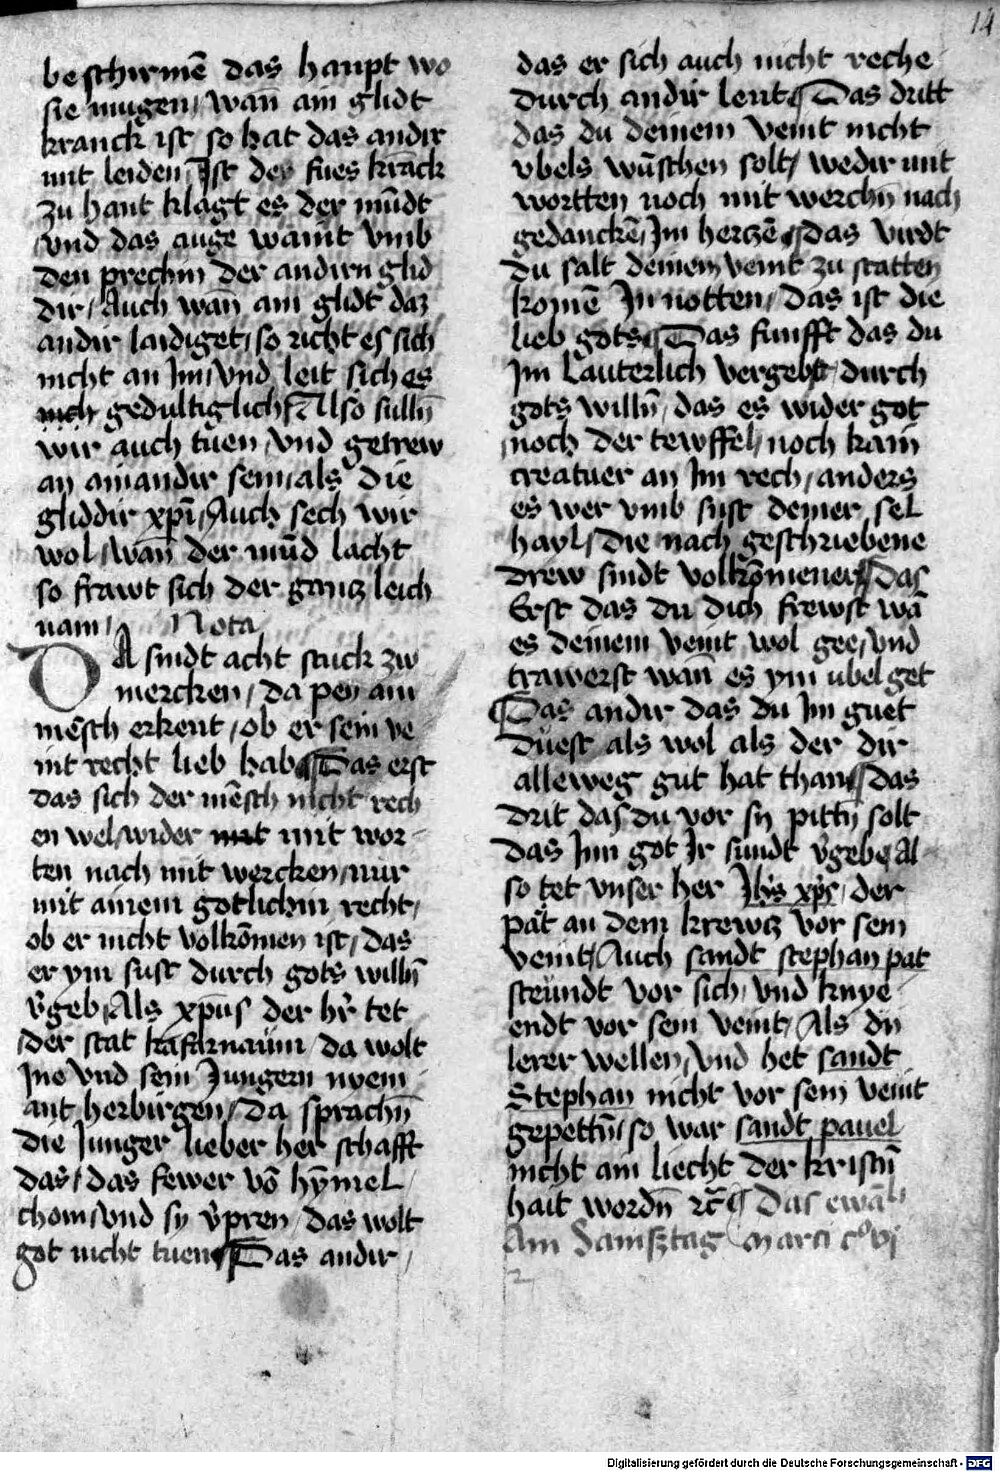 14
beschirmē das haupt wo
sie mugen / wan̄ ain glidt
kranck ist so hat das andir
mit leiden Ist der fues krack
zu hant klagt es der mūdt
vnd das auge waint vmb
den prechin der andirn glid
dir / Auch wan̄ ain glidt daz
andir laidiget / so richt es sich
nicht an im / vnd leit sich es
gedultiglich / Also sulln̄
wir auch tuen / vnd getrew
an ainandir sein / als die
gliddir xp̄i / Auch sech wir
wol / wan̄ der mūd lacht
so frawt sich der gantz leich
nam / Nota
DA sindt acht stuck zw
mercken / da pey ain
mēsch erkent / ob er sein ve
int recht lieb hab ¶ Das erst
das sich der mēsch nicht rech
en wel / wider mit wor-
ten nach mit wercken / nur
mit ainem gotlichin recht /
ob er nicht volkōmen ist / das
er ym sust durch gots willn̄
v̄geb / Als xp̄us der hr̄ tet
der stat kafarnaüm / da wolt
Ine vnd sein Jungern nyem
ant herbirgen / da sprachn̄
die Junger lieber her schafft
das / das fewer vō hȳmel
chom / vnd sy v̄pren / das wolt
got nicht tuen ¶ Das andir /
das er sich auch nicht reche
durch andir leut ¶ Das dritt
das du deinem veint nicht
vbels wūschen solt / wedir mit
wortten noch mit werchn̄ nach
gedanckē / Im herczē ¶ das virdt
du salt deinem veint zu statten
komē In notten / das ist die
lieb gots ¶ Das funfft das du
Im lauterlich vergebst / durch
gots willn̄ / das es wider got
noch der tewffel / noch kain
creatuer an Im rech / anders
es wer vmb sust deiner sel
hayl / die nach geschriebene
drew sindt volkōmener ¶ das
Erst das du dich frewst wā
es deinem veint wol gee / vnd
trawerst wan̄ es ym ubel get
¶ Das andir das du Im guet
düest als wol als der dir
alleweg gut hat than ¶ das
drit das du vor sy pittn̄ solt
das Inn got Ir sundt v̄gebe Al
so tet vnser her Jhs xps / der
pät an dem krewtz vor sein
veint / Auch sandt stephan pat
steündt vor sich / vnd knye
endt vor sein veint / Als dy
lerer wellen / vnd het sandt
Stephan nicht vor sein veint
gepettn̄ / so war sandt pauel
nicht ain liecht der kristn̄
hait wordn̄ ⁊c̄ ¶ Das ewāli
Am Samsztag marci cº vj
Digitalisierung gefördert durch die Deutsche Forschungsgemeinschaft - DFG